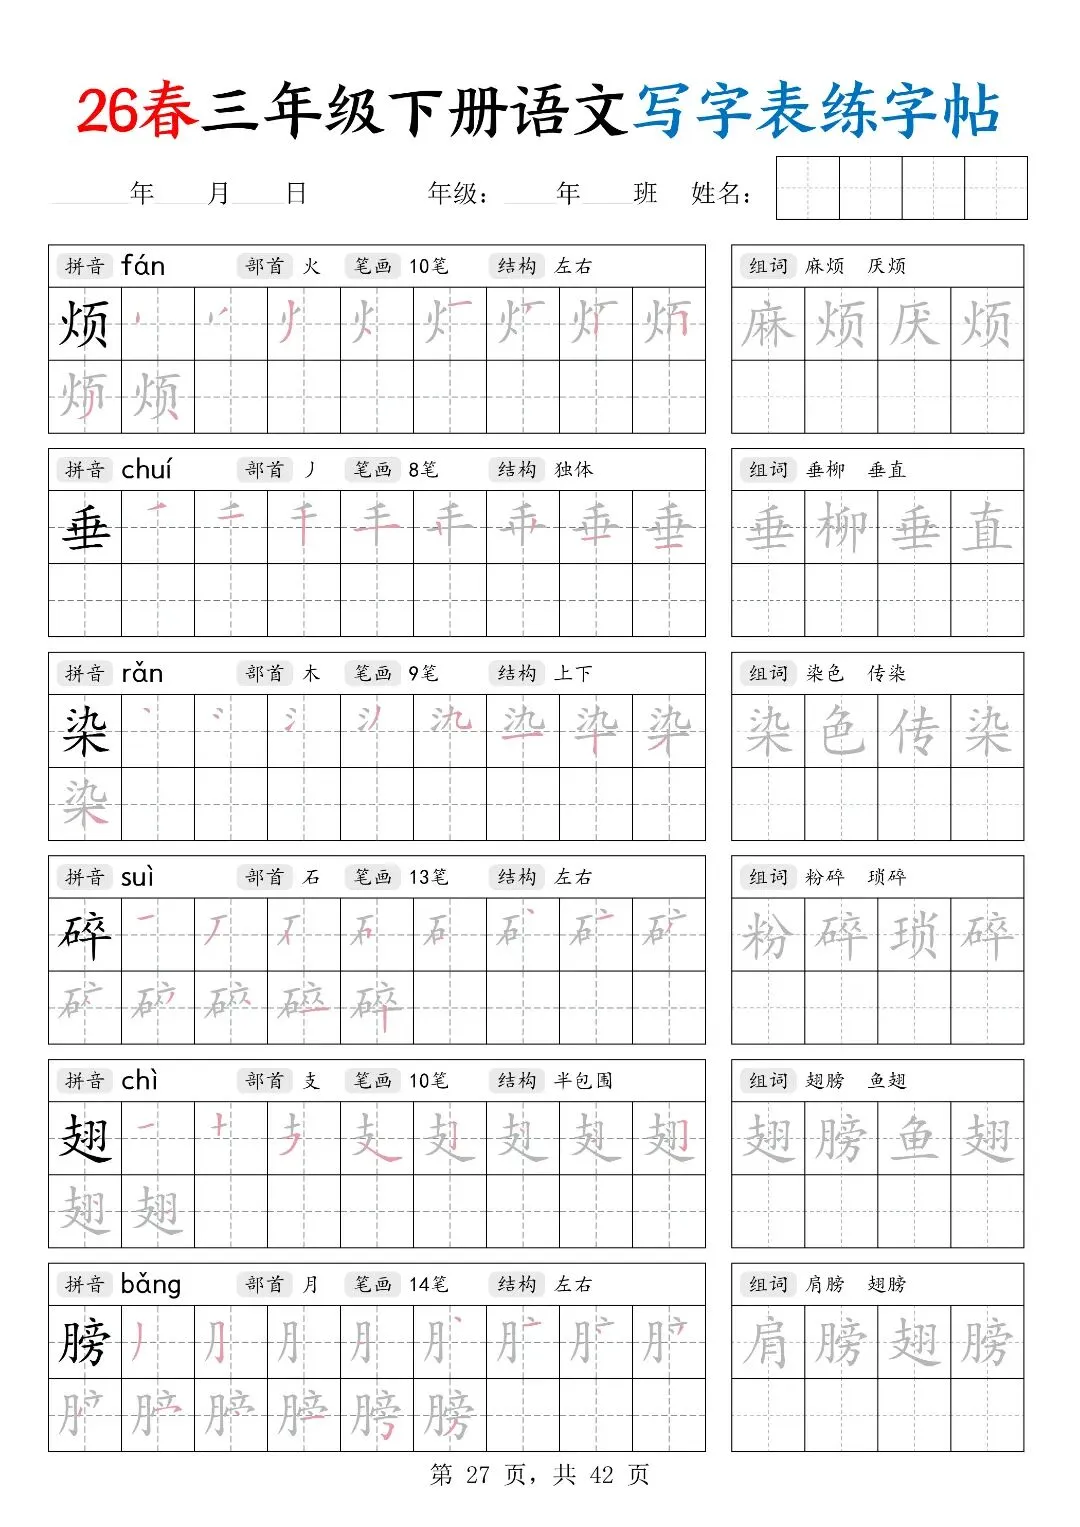 26春三年级下册语文写字表练字帖
年 月 日 年级: 年 班 姓名:
拼音 fán 部首 火 笔画 10笔 结构 左右 组词 麻烦 厌烦
烦 麻 烦 厌 烦
拼音 chuí 部首 丿 笔画 8笔 结构 独体 组词 垂柳 垂直
垂 垂 柳 垂 直
拼音 rǎn 部首 木 笔画 9笔 结构 上下 组词 染色 传染
染 染 色 传 染
染
拼音 suì 部首 石 笔画 13笔 结构 左右 组词 粉碎 琐碎
碎 粉 碎 琐 碎
碎
拼音 chì 部首 支 笔画 10笔 结构 半包围 组词 翅膀 鱼翅
翅 翅 膀 鱼 翅
翅
拼音 bǎng 部首 月 笔画 14笔 结构 左右 组词 肩膀 翅膀
膀 肩 膀 翅 膀
膀
第 27 页, 共 42 页